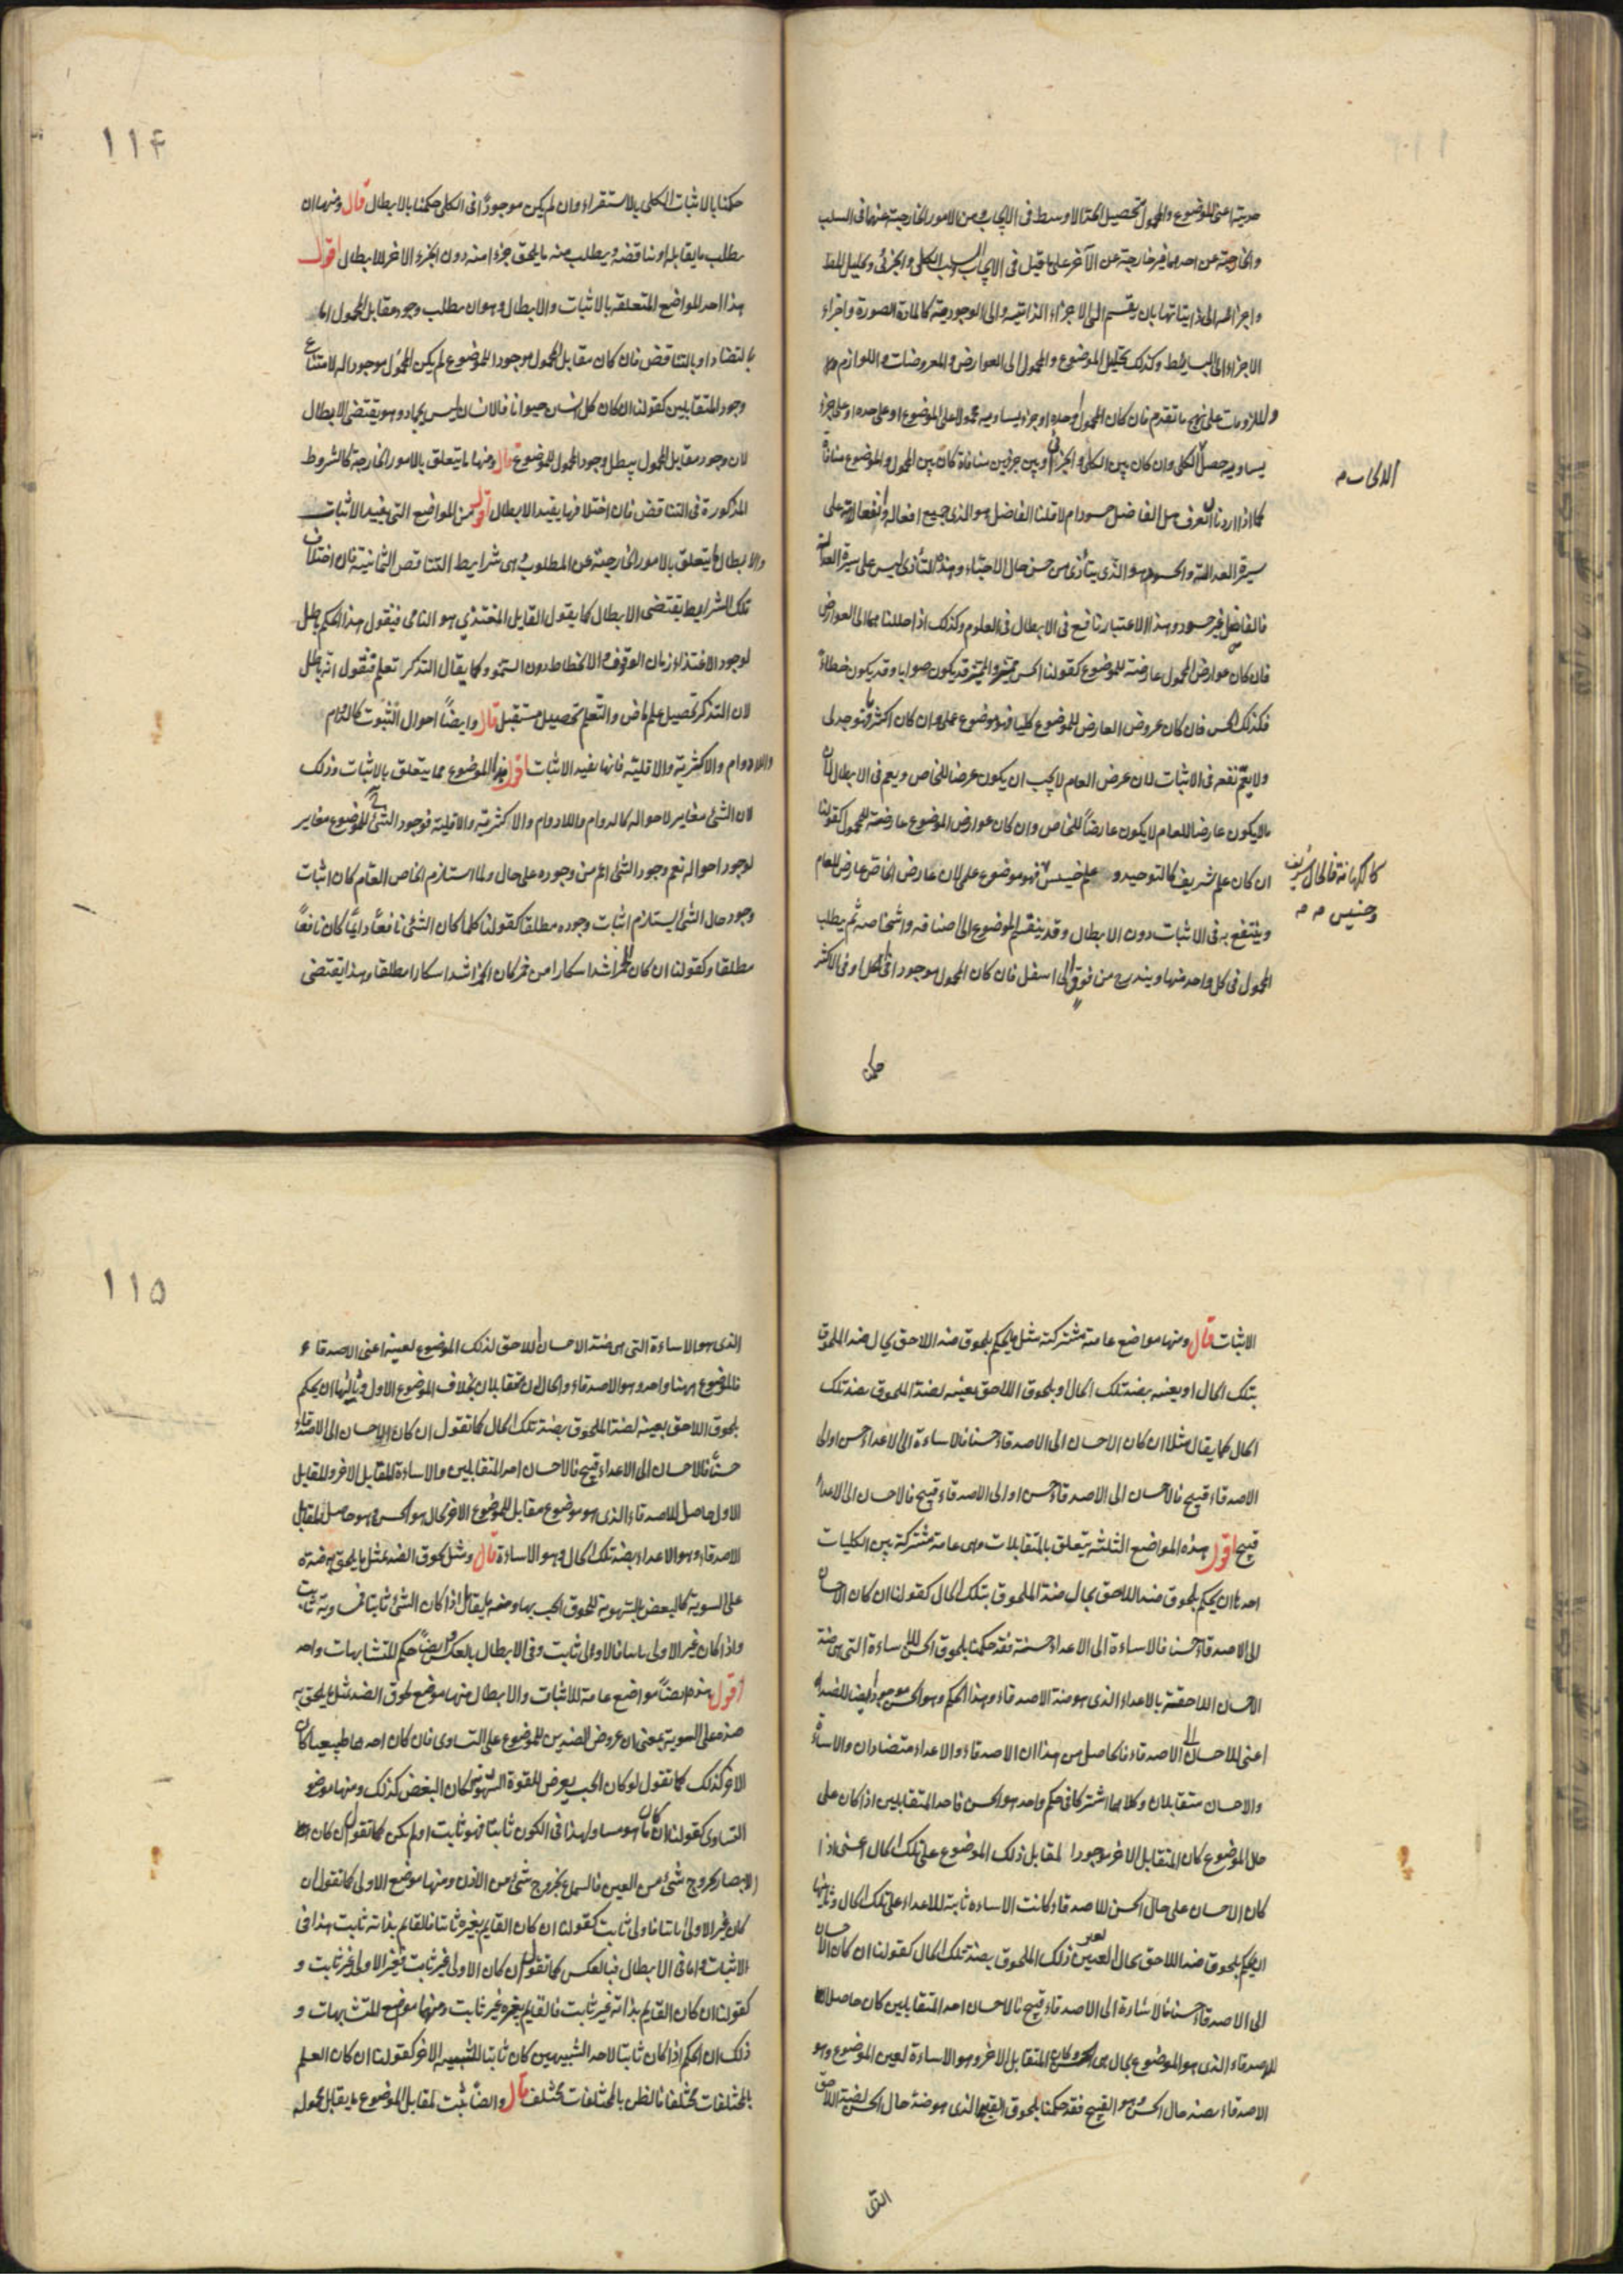 حديته اعنى الموضوع والمحمول تحصيل الحد الاوسط فى الايجاب ومن الامور الخارجية عنها فى السلب
والخارجية عن احدهما غير خارجية عن الآخر على ما قيل فى الايجاب السلب الكلى والجزئى وتحليل للحد
واجزائه الى ذاتياتها بان يقسم الى الاجزاء الذاتية والى الوجودية كالمادة الصورة واجزاء
الاجزاء الى البسايط وكذلك تحليل الموضوع والمحمول الى العوارض والمعروضات واللوازم
والملزومات على نهج ما تقدم فان كان المحمول وحده او جزء يساويه محمولا على الموضوع او على حده او على جزء
يساويه حصل الكلى وان كان بين الكلى والجزء او بين جزئين منافاة كان بين المحمول والموضوع منافاة
الايجاب
كما اذا اردنا ان نعرف هل الفاضل حسود ام لا قلنا الفاضل هو الذى جميع افعاله وانفعالاته على
سيرة العدالة والحسود هو الذى يتأذى من حسن حال الاحباء وهذا التأذى ليس على سيرة العدالة
فالفاضل غير حسود وهذا الاعتبار نافع فى الابطال فى العلوم وكذلك اذا حللناهما الى العوارض
فان كان عوارض المحمول عارضة للموضوع كقولنا الحس مميز والمميز قد يكون صوابا وقد يكون خطاء
فكذلك الحس فان كان عروض العارض للموضوع كليا فهو موضوع علمى وان كان اكثريا فتوجدلى
ولا يعم نفعه فى الاثبات لان عرض العام لا يجب ان يكون عرضا للخاص ويعم فى الابطال لان
ما لا يكون عارضا للعام لا يكون عارضا للخاص وان كان عوارض الموضوع عارضة للمحمول كقولنا
ان كان علم شريف كالتوحيد وعلم خسيس فهو موضوع علمى لان عارض الخاص عارض للعام
كالكهانة فالحال شريف
وخسيس
وينتفع به فى الاثبات دون الابطال وقد ينقسم الموضوع الى اصنافه واشخاصه ثم يطلب
المحمول فى كل واحد منها ويندرج من فوق الى اسفل فان كان المحمول موجودا فى الكل او فى الاكثر
حكمنا
١١٤
حكمنا بالاثبات الكلى بالاستقراء وان لم يكن موجودا فى الكلى حكمنا بالابطال قال ومنها ان
يطلب ما يقابله او يناقضه ويطلب منه ما يلحق جزءا منه دون الجزء الاخر للابطال اقول
هذا احد المواضع المتعلقه بالاثبات والابطال وهو ان يطلب وجود مقابل المحمول اما
بالتضاد او بالتناقض فان كان مقابل المحمول موجودا للموضوع لم يكن المحمول موجودا له لامتناع
وجود المتقابلين كقولنا ان كان كل انسان حيوانا فالانسان ليس بجماد وهو يقتضى الابطال
لان وجود مقابل المحمول يبطل وجود المحمول للموضوع قال ومنها ما يتعلق بالامور الخارجة كالشروط
المذكورة فى التناقض فان اختلافها يفيد الابطال اقول من المواضع التى يفيد الاثبات
والابطال ما يتعلق بالامور الخارجية عن المطلوب وهى شرايط التناقض الثمانية فان اختلاف
تلك الشرايط يقتضى الابطال كما يقول القايل المغتذي هو النامى فيقول هذا الحكم باطل
لوجود الاغتذاء زمان الوقوف والانحطاط دون النمو وكما يقال التذكر تعلم فنقول انه باطل
لان التذكر تحصيل علم ماض والتعلم تحصيل مستقبل قال وايضا احوال الثبوت كالدوام
واللادوام والاكثرية والاقلية فانها يفيد الاثبات اقول هذا الموضوع مما يتعلق بالاثبات وذلك
لان الشئ مغاير لاحواله كالدوام واللادوام والاكثرية والاقلية فوجود الشئ للموضوع مغاير
لوجود احواله نعم وجود الشئ اعم من وجوده على حال ولما استلزم الخاص العام كان اثبات
وجود حال الشئ يستلزم اثبات وجوده مطلقا كقولنا كلما كان الشئ نافعا دايما كان نافعا
مطلقا وكقولنا ان كان الخمر اشد اسكارا من خمر كان الخمر اشد اسكارا مطلقا وهذا يقتضى
الاثبات قال ومنها مواضع عامة مشتركة مثل ما يحكم بلحوق ضد اللاحق بحال ضد الملحوق
بتلك الحال او بعينه بضد تلك الحال او بلحوق اللاحق بعينه لضد الملحوق بضد تلك
الحال كما يقال مثلا ان كان الاحسان الى الاصدقاء حسنا فالاساءة الى الاعداء حسن او الى
الاصدقاء قبيح فالاحسان الى الاصدقاء حسن او الى الاصدقاء قبيح فالاحسان الى الاعداء
قبيح اقول هذه المواضع الثلثة يتعلق بالمتقابلات وهى عامة مشتركة بين الكليات
احدها ان يحكم بلحوق ضد اللاحق بحال ضد الملحوق بتلك الحال كقولنا ان كان الاحسان
الى الاصدقاء حسنا فالاساءة الى الاعداء حسنة فقد حكمنا بلحوق الحسن للاساءة التى هى ضد
الاحسان اللاحقة بالاعداء الذى هو ضد الاصدقاء وهذا الحكم وهو الحسن موجود ايضا للضد
اعنى للاحسان الى الاصدقاء فالحاصل من هذا ان الاصدقاء والاعداء متضادان والاساءة
والاحسان متقابلان وكلاهما اشتركا فى حكم واحد هو الحسن فاحد المتقابلين اذا كان على
حال الموضوع كان المتقابل الاخر موجودا لمقابل ذلك الموضوع على تلك الحال اعنى اذا
كان الاحسان على حال الحسن للاصدقاء كانت الاساءه ثابتة للاعداء على تلك الحال وثانيها
ان يحكم بلحوق ضد اللاحق بحال لعين ذلك الملحوق بضد تلك الحال كقولنا ان كان الاحسان
الى الاصدقاء حسنا فالاساءة الى الاصدقاء قبيح فالاحسان احد المتقابلين كان حاصلا
للاصدقاء الذى هو الموضوع بحال هى الحسن وكان المتقابل الاخر وهو الاساءة لعين الموضوع وهو
الاصدقاء بضد حال الحسن وهو القبيح فقد حكمنا بلحوق القبح الذى هو ضد حال الحسن لضد اللاحق
الذى
١١٥
الذى هو الاساءة التى هى ضد الاحسان اللاحق لذلك الموضوع لعينه اعنى الاصدقاء
فالموضوع ههنا واحد وهو الاصدقاء والحالان متقابلان بخلاف الموضوع الاول وثالثها ان يحكم
بلحوق اللاحق بعينه لضد الملحوق بضد تلك الحال كما تقول ان كان الاحسان الى الاصدقاء
حسنا فالاحسان الى الاعداء قبيح فالاحسان احد المتقابلين والاساءة المقابل الاخر والمقابل
الاول حاصل للاصدقاء الذى هو موضوع مقابل للموضوع الاخر بحال هو الحسن وهو حاصل لمقابل
الاصدقاء وهو الاعداء بضد تلك الحال وهو الاساءة قال ومثل لحوق الضد بمثل ما يلحق به ضده
على السوية كالبعض بالشهوية للحوق الحب بها وضده ما يقال اذا كان الشئ ثابتا فمساويه ثابت
واذا كان غير الاولى ثابتا فالاولى ثابت وفى الابطال بالعكس وايضا حكم المتشابهات واحد
اقول هذه ايضا مواضع عامة للاثبات والابطال منها موضع لحوق الضد مثل ما يلحق به
ضده على السوية بمعنى ان عروض الضدين للموضوع على التساوى فان كان احدهما طبيعيا كان
الاخر كذلك كما تقول لو كان الحب يعرض للقوة الشهوية لكان البغض كذلك ومنها موضع
التساوى كقولنا ان كان ما هو مساو لهذا فى الكون ثابتا فهو ثابت او لم يكن كما تقول ان كان
الابصار بخروج شئ من العين فالسماع بخروج شئ من الاذن ومنها موضع الاولى كما تقول ان
كان غير الاولى ثابتا فاولى ثابت كقولنا ان كان القايم بغيره ثابتا فالقايم بذاته ثابت هذا فى
الاثبات واما فى الابطال فبالعكس كما تقول ان كان الاولى غير ثابت فغير الاولى غير ثابت و
كقولنا ان كان القايم بذاته غير ثابت فالقايم بغيره غير ثابت ومنها موضع المتشبهات و
ذلك ان الحكم اذا كان ثابتا لاحد الشبيهين كان ثابتا للشبيه الاخر كقولنا ان كان العلم
بالمختلفات مختلفا فالظن بالمختلفات مختلف قال وايضا يثبت لمقابل الموضوع ما يقابل محموله